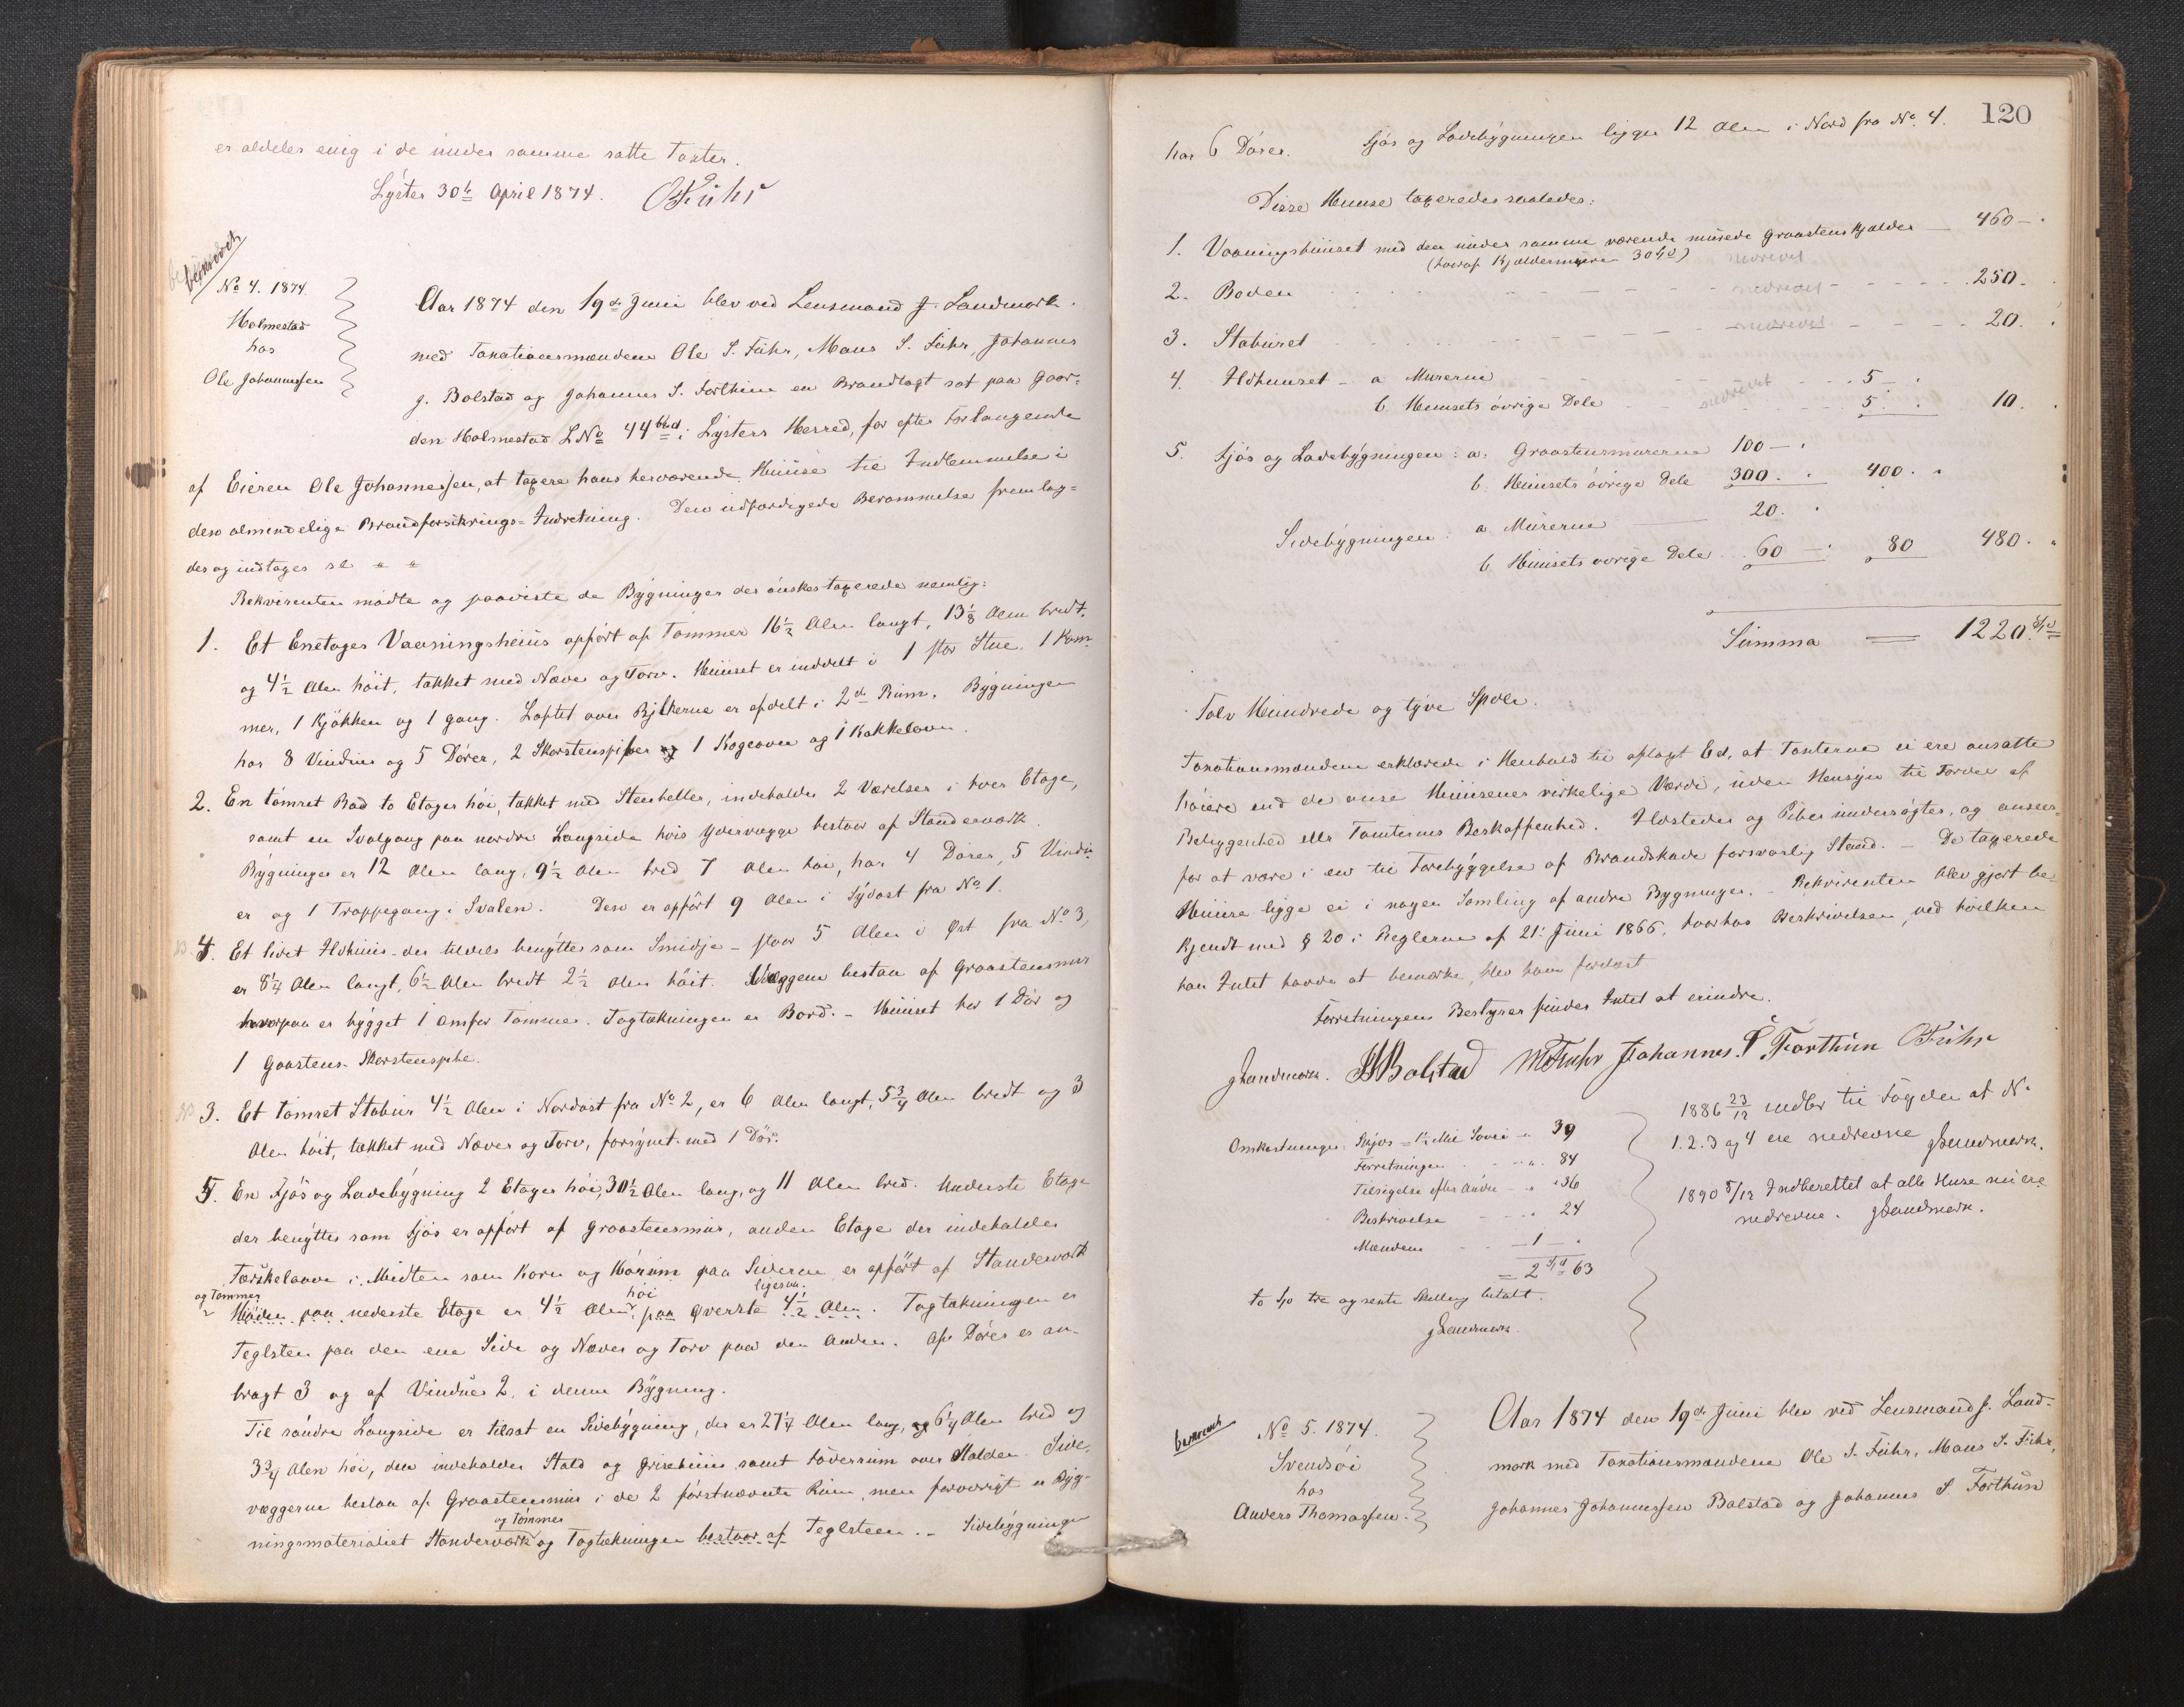 er aldeles enig i de under samme satte Taxter.
Lyster 30te April 1874. OFuhr
beskrevet
No 4. 1874.
Holmestad
hos
Ole Johannessen
Aar 1874 den 19de Juni blev ved Lensmand J. Landmark
med Taxationsmændene Ole S. Fuhr, Mons S. Fuhr, Johannes
J. Bolstad og Johannes S. Forthun en Brandtagt sat paa Gaar-
den Holmestad LNo 44 i Lysters Herred, for efter Forlangende
af Eieren Ole Johannessen, at taxere hans herværende Huuse til Indlemmelse i
den almindelige Brandforsikrings-Indretning. Den udfærdigede Berammelse fremlag-
des og indtages sl " "
Rekvirenten mødte og paaviste de Bygninger der ønskes taxerede nemlig:
1. Et Enetages Vaaningshuus opført af Tømmer 16½ Alen langt, 13⅛ Alen bredt
og 4½ Alen høit, tækket med Næver og Torv. Huuset er inddelt i 1 stor Stue, 1 Kam-
mer, 1 Kjøkken og 1 Gang. Loftet over Bjelkerne er afdelt i 2de Rum. Bygningen
har 8 Vinduer og 5 Dører, 2 Skorstenspiber og 1 Kogeovn og 1 Kakkelovn.
2. En tømret Bod to Etager høi, tækket med Stenheller, indeholder 2 Værelser i hver Etage,
samt en Svalgang paa nordre Langside hvis Ydervægge bestaar af Standerværk.
Bygningen er 12 Alen lang, 9½ Alen bred 7 Alen høi, har 4 Dører, 5 Vindu-
er og 1 Trappegang i Svalen. Den er opført 9 Alen i Sydost fra No 1.
4. Et lidet Ildhuus der tildels benyttes som Smidje – staar 5 Alen i Øst fra No 3,
er 8¼ Alen langt, 6½ Alen bredt 2½ Alen høit. Væggene bestaa af Graastensmur
hvorpaa er bygget 1 omfar Tømmer. Tagtækningen er Bord. – Huuset har 1 Dør og
1 Graastens Skorstenspibe.
3. Et tømret Stabur 4½ Alen i Nordost fra No 2, er 6 Alen langt, 5¾ Alen bredt og 3
Alen høit, tækket med Næver og Torv, forsynet med 1 Dør.
5. En Fjøs og Ladebygning 2 Etager høi, 30½ Alen lang, og 11 Alen bred. Underste Etage
der benyttes som Fjøs er opført af Graastensmur, anden Etage der indeholder
Tærskelaave i Midten som Korn og Hørum paa Siderne er opført af Standerværk
og Tømmer høi ligesaa
Høiden paa nederste Etage er 4½ Alen, paa Øverste 4½ Alen. Tagtækningen er
Teglsten paa den ene Side og Næver og Torv paa den Anden. Af Dører er an-
bragt 3 og af Vinduer 2 i denne Bygning.
Til søndre Langside er tilsat en Sidebygning, der er 27¼ Alen lang, og 6¼ Alen bred og
3¾ Alen høi, den indeholder Stald og Grisehuus samt Foderrum over Stalden. Side-
væggerne bestaa af Graastensmur i de 2 førstnævnte Rum, men forøvrigt er Byg-
og Tømmer
ningsmaterialiet Standerværk og Tagtækningen bestaar af Teglsteen. – Sidebygningen
120
har 6 Dører. Fjøs og Ladebygningen ligger 12 Alen i Nord fra No 4.
Disse Huuse taxeredes saaledes:
1. Vaaningshuuset med den under samme værende murede Graastens Kjælder 460 –
(heraf Kjældermuren 30 Spd) nedrevet
2. Boden nedrevet 250.
3. Staburet nedrevet 20.
4. Ildhuuset – a Murerne 5
b. Huusets øvrige Dele nedrevet 5 10.
5. Fjøs og Ladebygningen: a. Graastensmurerne 100 –
b. Huusets øvrige Dele 300. 400.
Sidebygningen: a. Murerne 20.
b. Huusets øvrige Dele 60 80 480.
Summa = 1220 Spd
Tolv Hundrede og tyve Spdlr.
Taxationsmændene erklærede i Henhold til aflagt Ed, at Taxterne ei ere ansatte
høiere end de anse Huusenes virkelige Værdi, uden Hensyn til Fordel af
Beliggenhed eller Tomternes Beskaffenhed. Ildsteder og Piber undersøgtes, og ansees
for at være i en til Forebyggelse af Brandskade forsvarlig Stand. – De taxerede
Huuse ligge ei i nogen Samling af andre Bygninger. – Rekvirenten blev gjort be-
kjendt med § 20 i Reglerne af 21. Juni 1866, hvorhos Beskrivelsen, ved hvilken
han Intet havde at bemærke, blev ham forelæst
Forretningens Bestyrer finder Intet at erindre.
JLandmark. JJBolstad MSFuhr Johannes S. Forthun OFuhr
Omkostninger: Skyds 1½ Mil 39
Forretningen 84
Tilsigelse 36
Beskrivelse 24
Mændene 1 –
= 2 Spd 63
to Sp tre og sexti Skilling betalt.
JLandmark.
1886 23/12 indbr til Fogden at No
1. 2. 3 og 4 ere nedrevne JLandmark.
1890 5/12 Indberettet at alle Huse nu ere
nedrevne. JLandmark.
beskrevet
No 5. 1874.
Svendsøi
hos
Anders Thomassen.
Aar 1874 den 19de Juni blev ved Lensmand J. Land-
mark med Taxationsmændene Ole S. Fuhr, Mons S. Fuhr,
Johannes Johannessen Bolstad og Johannes S Forthun